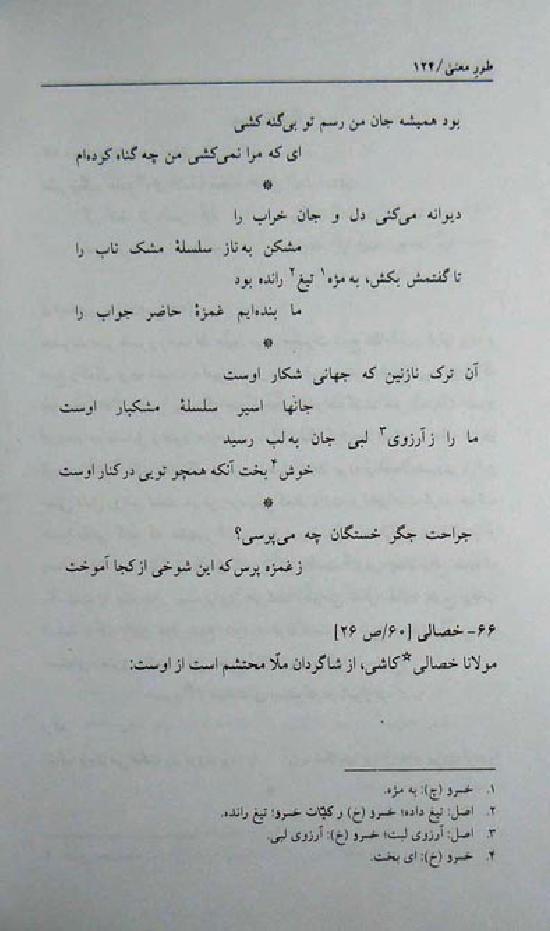 طور معنی / ۱۲۴
بود همیشه جان من رسم تو بی‌گنه کشی
ای که مرا نمی‌کشی من چه گناه کرده‌ام
*
دیوانه می‌کنی دل و جان خراب را
مشکن به ناز سلسلهٔ مشک ناب را
تا گفتمش بکش، به مژه۱ تیغ۲ رانده بود
ما بنده‌ایم غمزهٔ حاضر جواب را
*
آن ترک نازنین که جهانی شکار اوست
جانها اسیر سلسلهٔ مشکبار اوست
ما را ز آرزوی۳ لبی جان به لب رسید
خوش۴ بخت آنکه همچو تویی در کنار اوست
*
جراحت جگر خستگان چه می‌پرسی؟
ز غمزه پرس که این شوخی از کجا آموخت
۶۶- خصالی [۶۰/ص ۲۶]
مولانا خصالی* کاشی، از شاگردان ملّا محتشم است از اوست:
۱. خسرو (چ): به مژه.
۲. اصل: تیغ داده؛ خسرو (خ) و کلیّات خسرو: تیغ رانده.
۳. اصل: آرزوی لبت؛ خسرو (خ): آرزوی لبی.
۴. خسرو (خ): ای بخت.